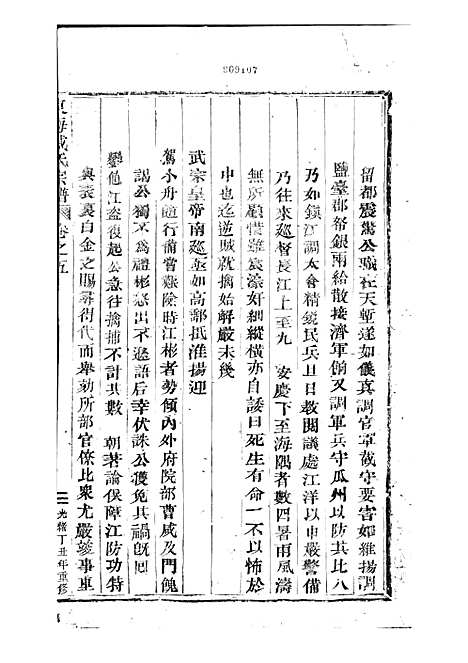 869107
留都震懾公職在天塹遂如儀真調官軍截守要害如維揚調
鹽臺郡帑銀兩給散接濟軍餉又調軍兵守瓜州以防其北八
乃如鎮江調大倉精鋭民兵旦日教閱議處江洋以申嚴警備
乃往來廵督長江上至九 安慶下至海隅者數四暑雨風濤
無所顧惜雖宸濠奸細縱橫亦自諉曰死生有命一不以怖於
中也迄逆城就擒始解嚴未幾
武宗皇帝南廵亟如高郵抵淮揚迎
駕小舟遄行備甞艱險時江彬者勢傾內外府院部曹咸及門愧
謁公獨不為禮彬怒出不遜語后幸伏誅公獲免其禍旣囘
鑾他江盜復起公急往擒捕不計其數 朝著論保障江防功特
與表裏白金之賜尋得代而舉劾所部官僚比衆尤嚴竣事車
東海戚氏宗譜 卷之五
光緒丁丑年重修